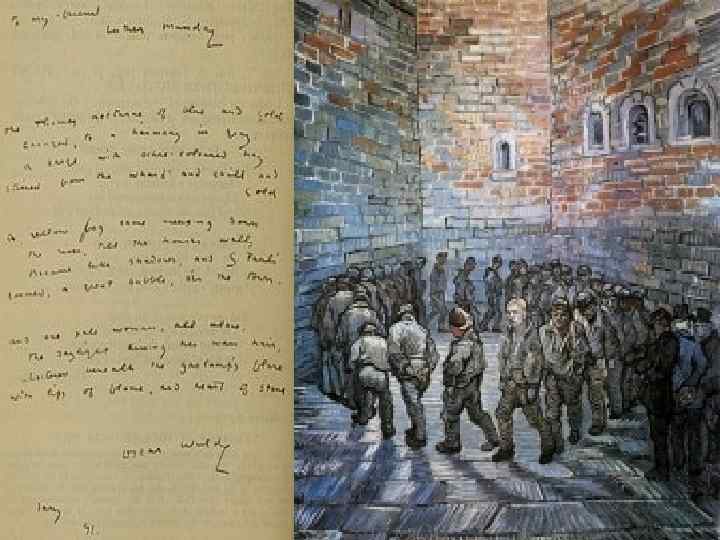 To my friend
Luther Munday
The Thames nocturne of blue and gold
Changed to a harmony in gray
A barge with ochre-coloured hay
from the wharf and chill and
cold
A yellow fog came creeping down
The till the houses' walls,
Became like shadows, and S. Paul's
Loomed, a great bubble, o'er the town.
And one pale woman, all alone,
The daylight kissing her warm hair,
Loitered beneath the gaslamp's flare
With lips of flame, and heart of stone
Oscar Wilde
91.